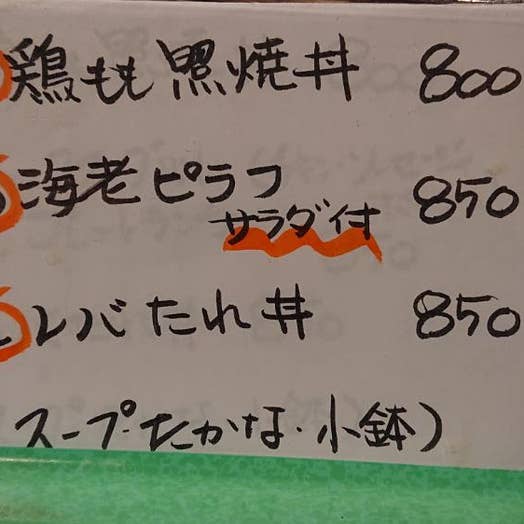 鶏もも照焼丼 800
海老ピラフ 850
サラダ付
レバたれ丼 850
スープ・たかな・小鉢)